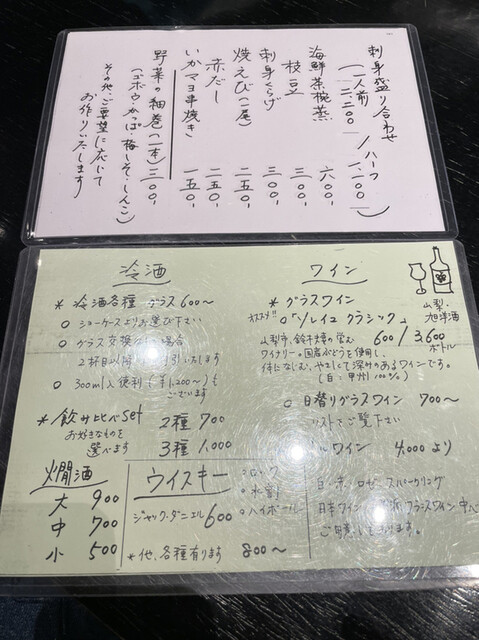 刺身盛り合わせ
(一人前 二、二〇〇 / ハーフ 一、一〇〇)
海鮮茶椀蒸 六〇〇、
枝豆 三〇〇、
刺身くらげ 三〇〇、
焼えび(二尾) 二五〇、
赤だし 二五〇、
いかマヨ串焼き 一五〇、
野菜の細巻(一本)三〇〇、
(ゴボウ・かっぱ・梅しそ・しんこ)
その他、ご要望に応じて
お作りいたします
冷酒
* 冷酒各種 グラス 600〜
○ ショーケースよりお選び下さい
○ グラス交換 場合
2杯目以降 引いたします
○ 300ml入便利(¥1,200〜)も
ございます
*飲み比べset 2種 700
お好きなものを
選べます 3種 1,000
燗酒
大 900
中 700
小 500
ウイスキー
ジャック・ダニエル 600
○ロック
○水割
○ハイボール
*他、各種有ります 800〜
ワイン
山梨・
旭洋酒
* グラスワイン
オススメ!! ○「ソレイユ クラシック」
600/3,600
ボトル
山梨市、鈴木夫妻の営む
ワイナリー。国産ぶどうを使用し、
体になじむ、やさしくて深みのあるワインです。
(白:甲州 100%)
○ 日替りグラスワイン 700〜
リストをご覧下さい
ルワイン 4,000より
白・赤・ロゼ・スパークリング
日本ワイン